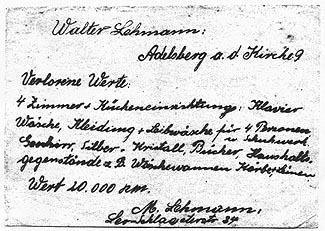 Walter Lehmann:
Adelsberg a. d. Kirche 9
Verlorene Werte:
4 Zimmer + Kücheneinrichtung, Klavier
Wäsche, Kleidung + Leibwäsche für 4 Personen
u. Schuhwerk
Geschirr, Silber + Kristall, Bücher, Haushalts-
gegenstände z. B. Wäschewannen Körbe, Leinen
Wert 10.000 RM.
M. Lehmann,